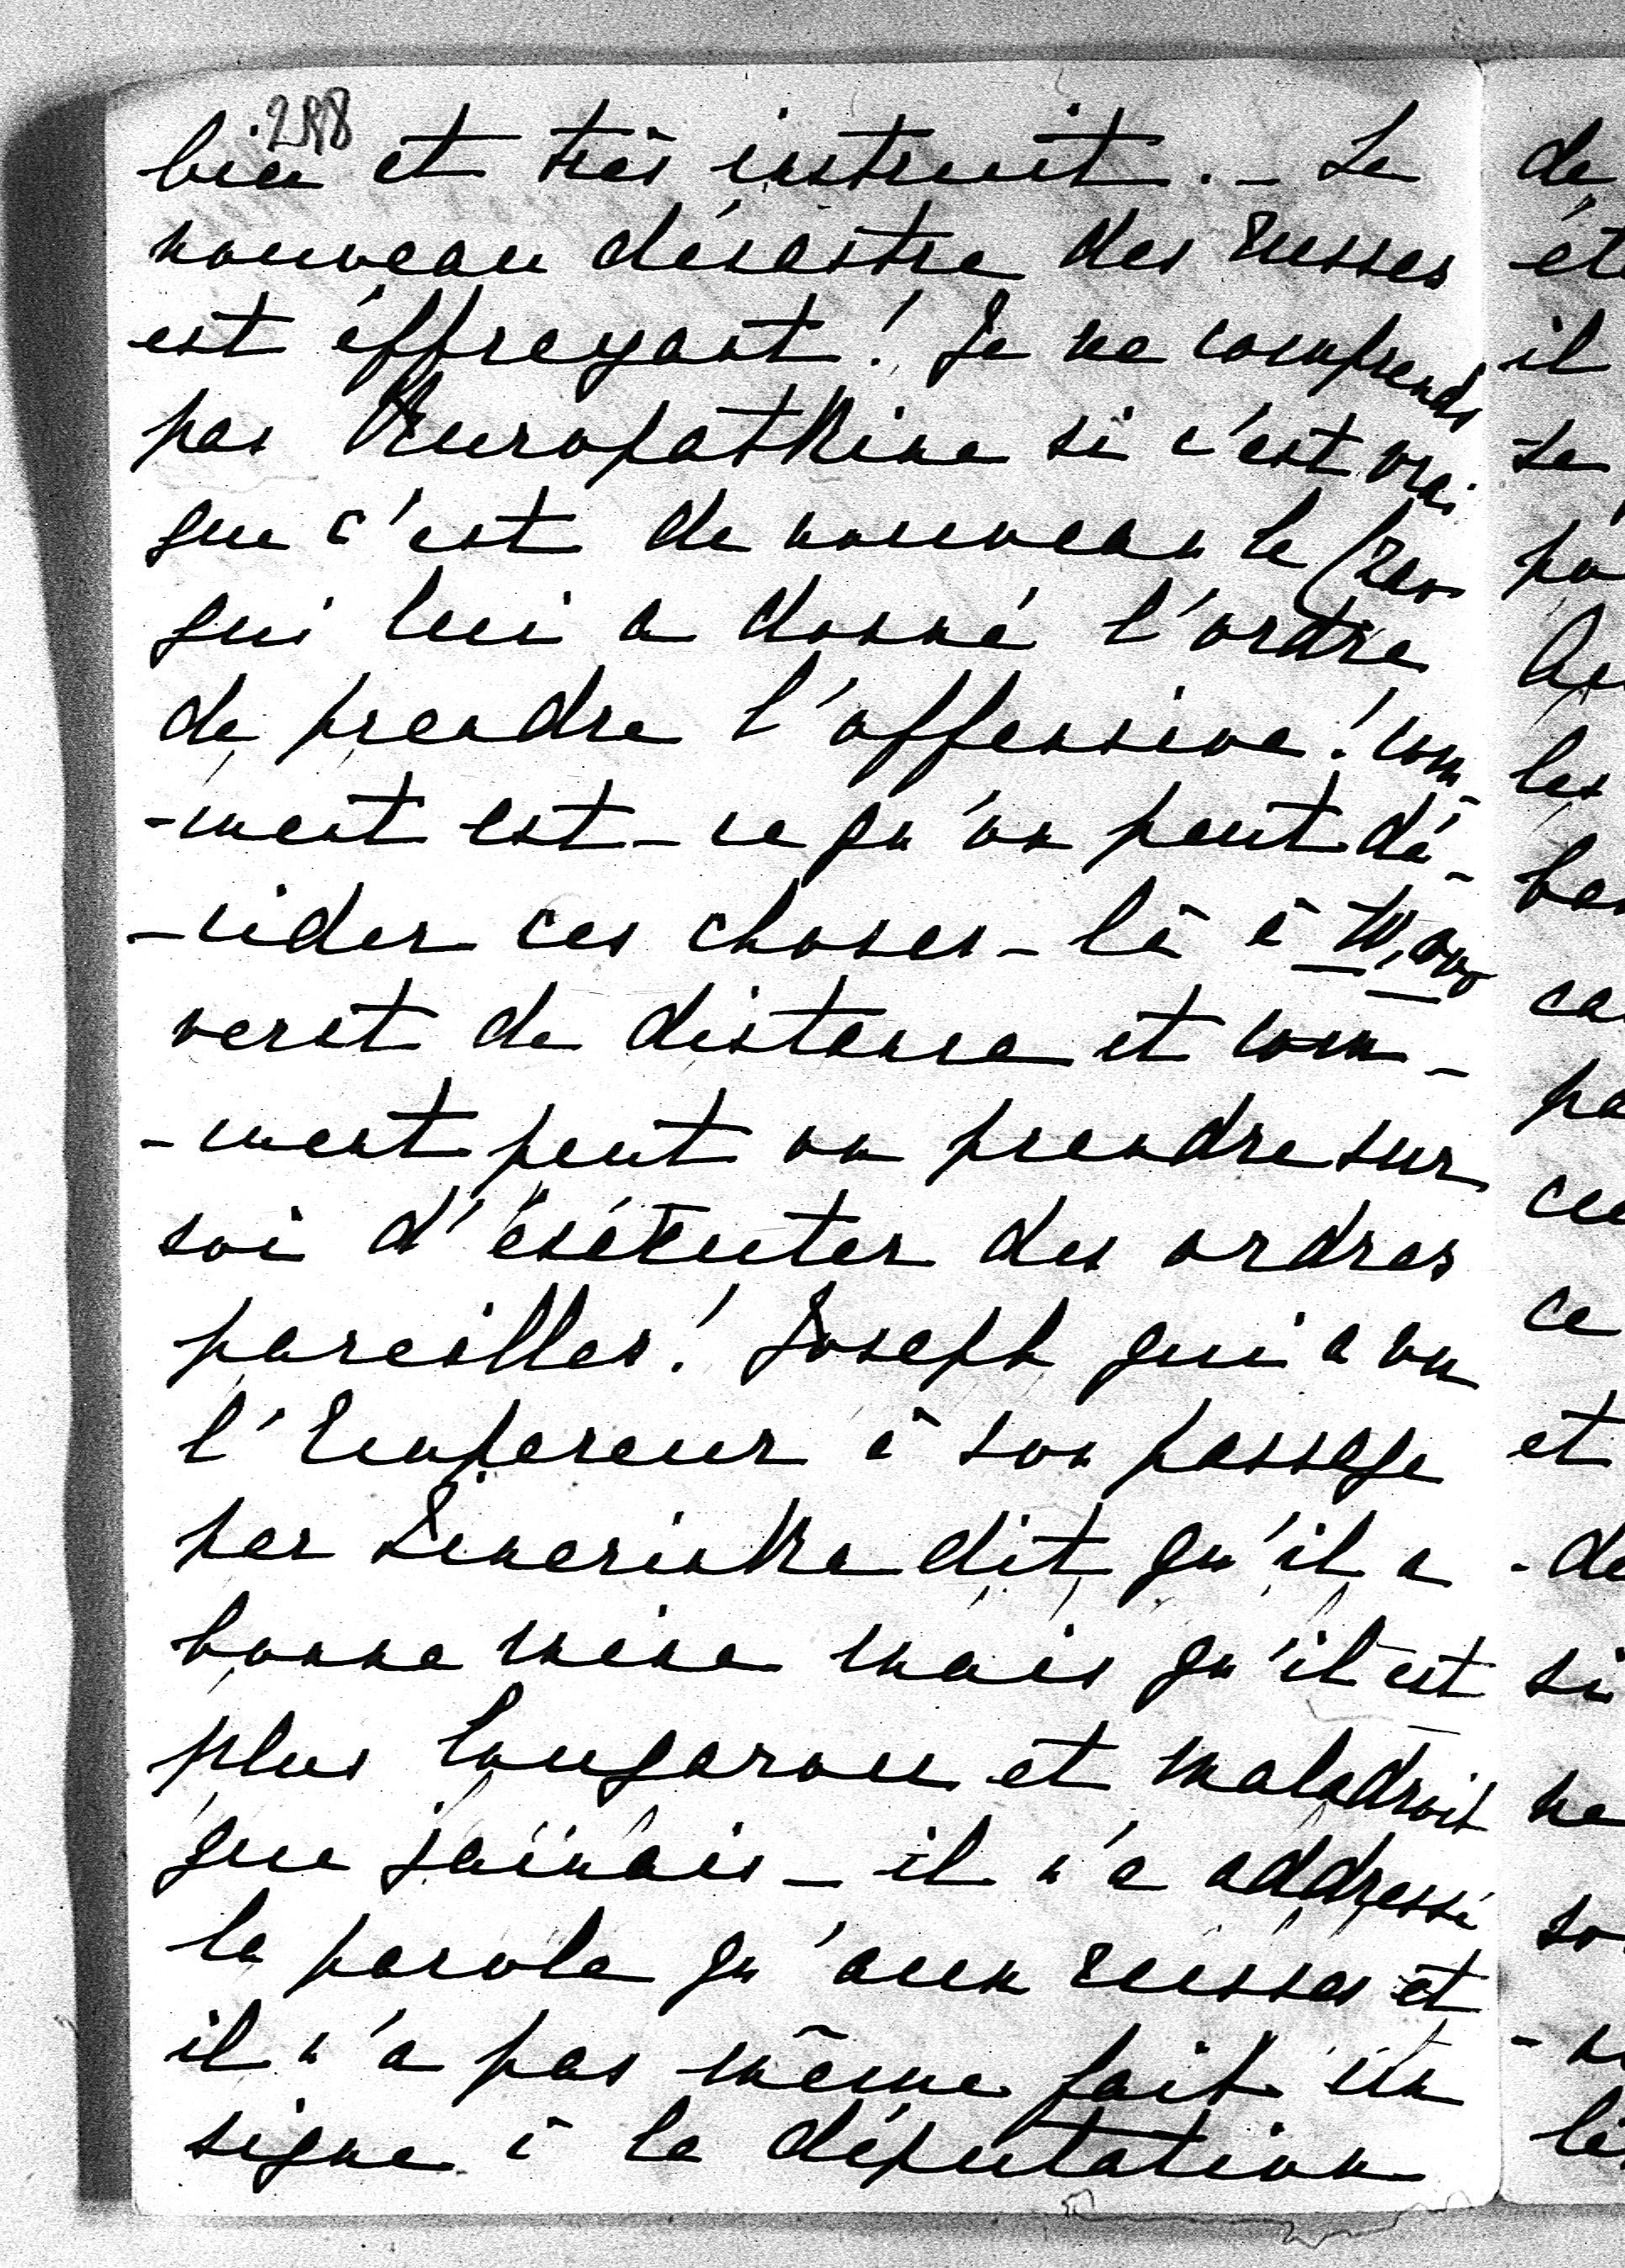 288
bien et très instruit. - Le
nouveau désastre des russes
est éffreyant! Je ne comprends
pas Kuropatkine si c'est vrai
que c'est de nouveau le Czar
qui lui a donné l'ordre
de prendre l'offensive! com-
-ment est-ce qu'on peut dé-
-cider ces choses-là à 10,000
verst de distance et com-
-ment peut on prendre sur
soi d'ésécuter des ordres
pareilles! Joseph qui a vu
l'Empereur à son passage
par dit qu'il a
bonne mine mais qu'il est
plus lougarou et maladroit
que jamais - il n'a addressé
la parole qu'aux russes et
il n'a pas même fait un
signe à la députation